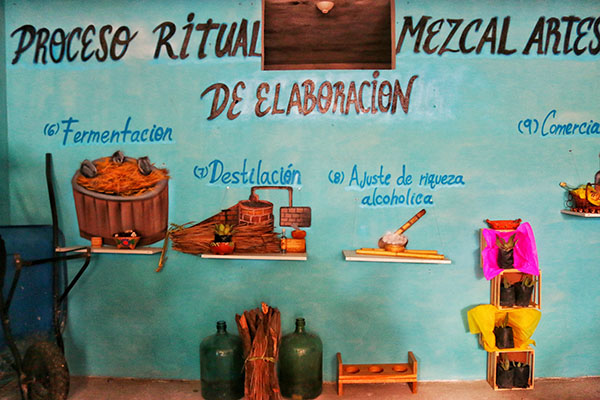 PROCESO RITUAL MEZCAL ARTES
DE ELABORACION
(6) Fermentacion
(7) Destilación
(8) Ajuste de riqueza
alcoholica
(9) Comercia